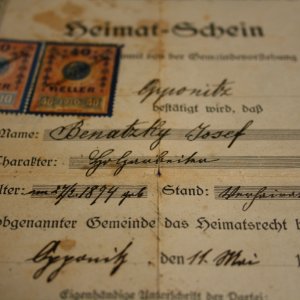 Heimat-Schein
von der Gemeindevorstehung
40
HELLER
Opponitz
bestätigt wird, daß
Name: Benatzky Josef
Charakter: Holzarbeiter
Alter: 1894 geb Stand: Verheirat
obgenannter Gemeinde das Heimatsrecht be
Opponitz, den 11. Mai 1
Eigenhändige Unterschrift der Partei: